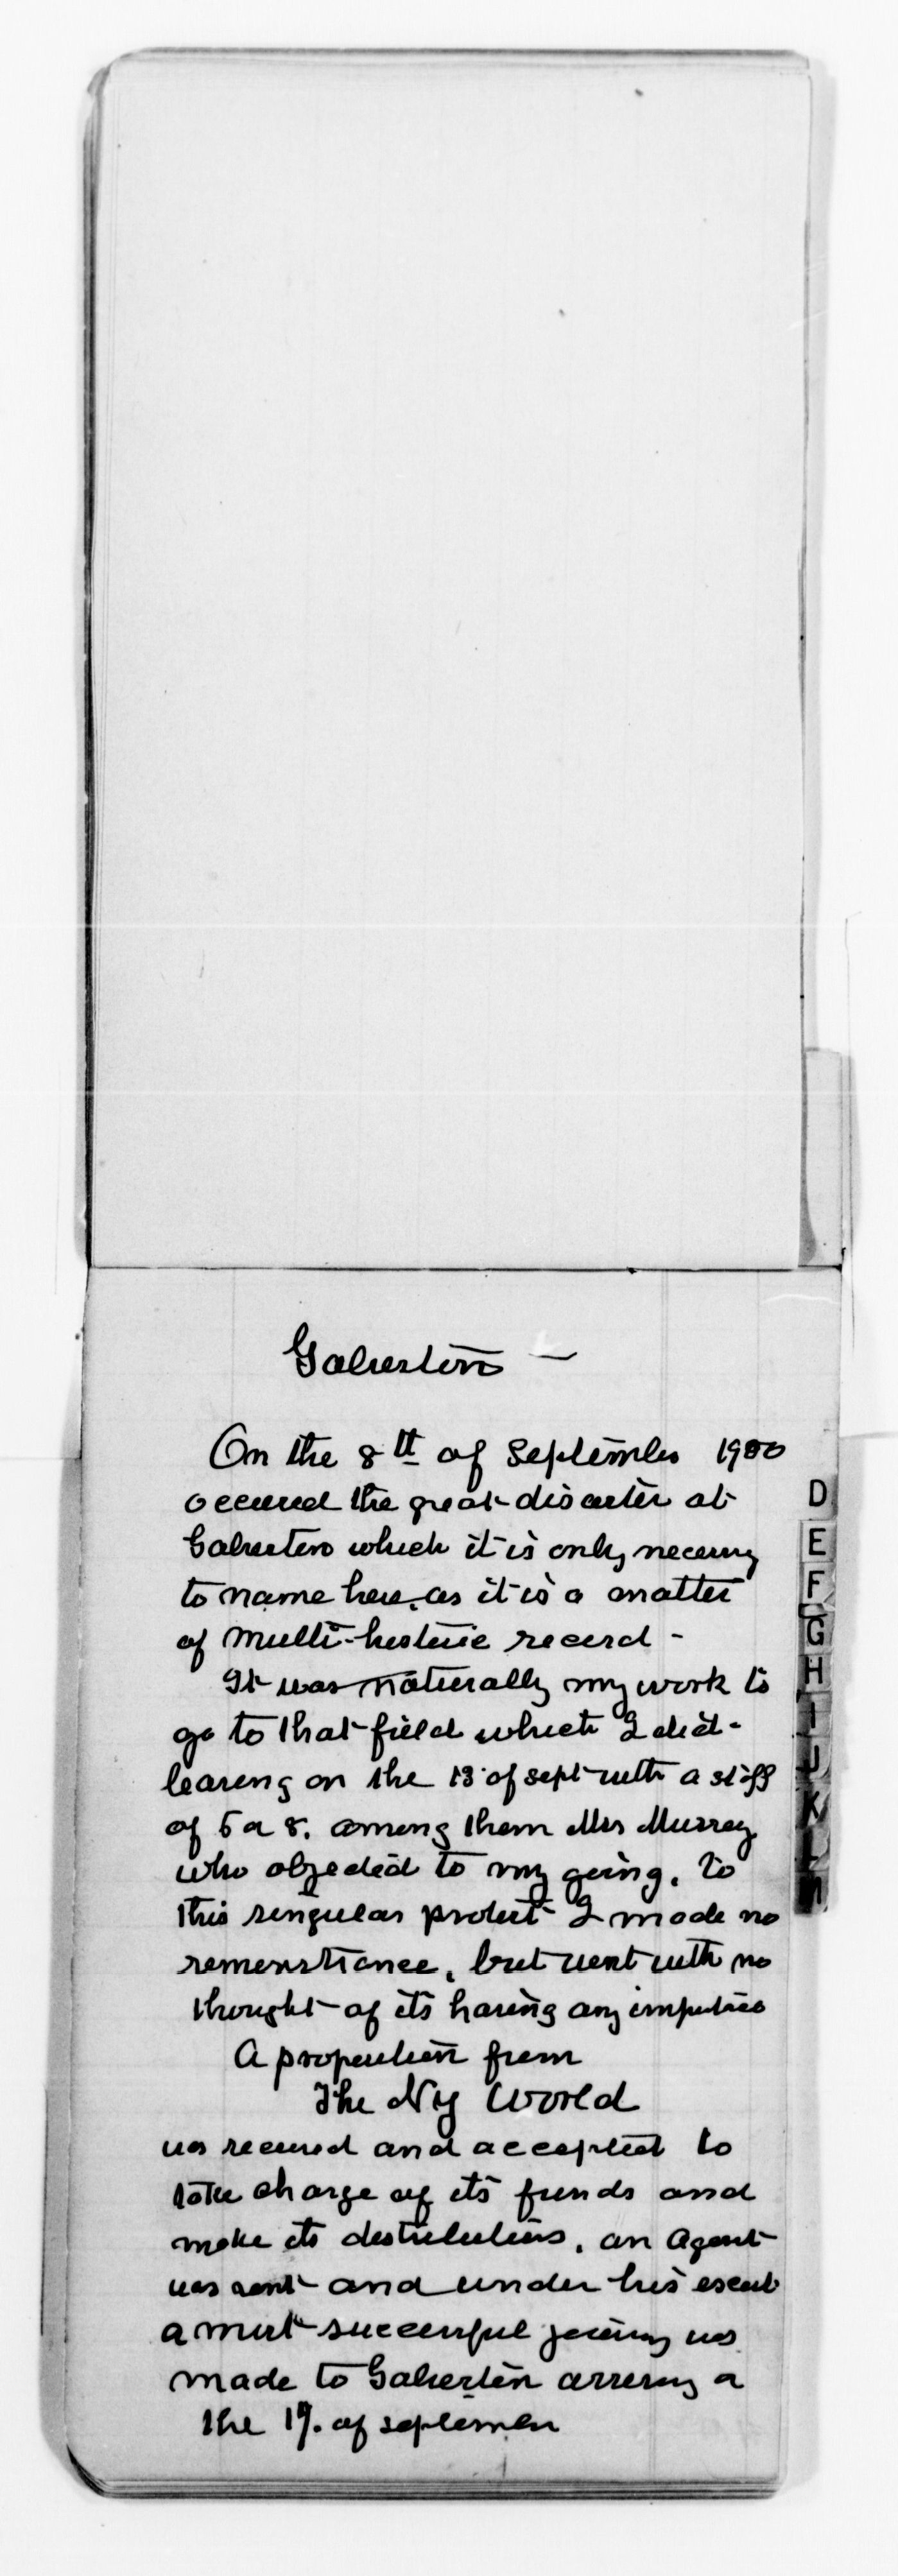 Galveston —
On the 8th of September 1900
occured the great disaster at
Galveston which it is only necessary
to name here, as it is a matter
of multi-historic record -
It was naturally my work to
go to that field which I did -
leaving on the 13 of sept with a staff
of 6 a 8. among them Mrs Murray
who objected to my going. To
this singular protest I made no
remonstrance, but went with no
thought of its having any
A proposition from
The NY World
was received and accepted to
take charge of its funds and
make its distributions. an Agent
was sent and under his escort
a most successful journey was
made to Galveston arriving a
the 17. of september
D
E
F
G
H
I
J
K
L
M